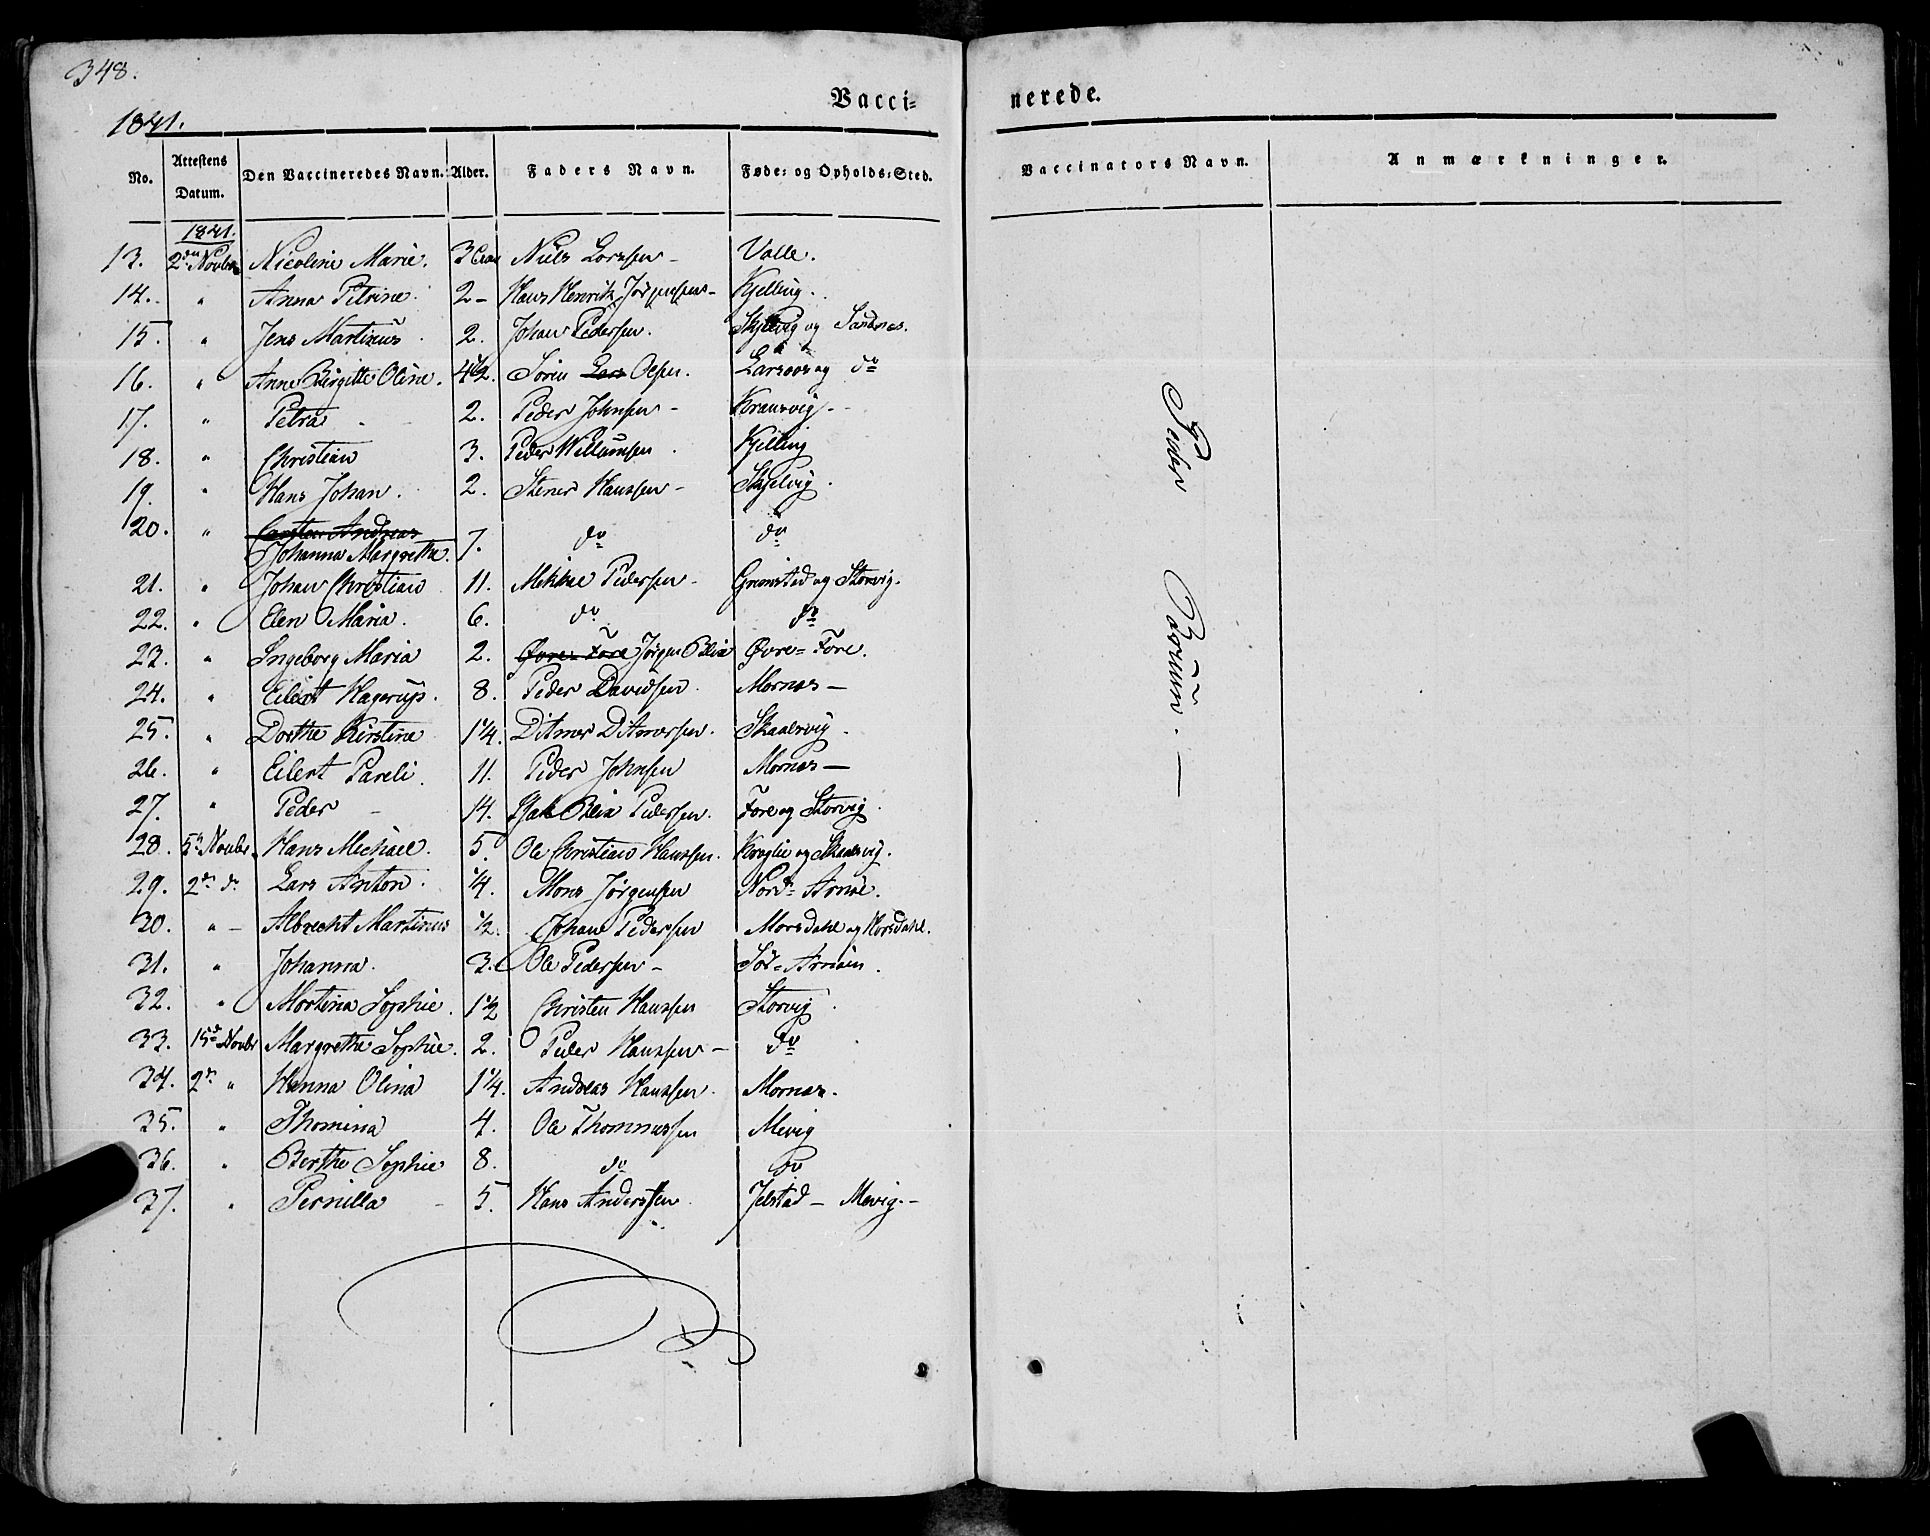 348.
Vacci= nerede.
1841.
No. Attestens Datum. Den Vaccineredes Navn. Alder. Faders Navn. Føde= og Opholds=Sted. Vaccinators Navn. Anmærkninger.
1841.
13. 2den Novbr Nicoline Marie. 3 Niels Larssen - Valle.
14. " Anna Petrine. 2 - Hans Henrik Jørgensen - Kjelling.
15. " Jens Martinus. 2. Johan Pedersen. og Sandnes.
16. " Anne Birgitte Oline. 4 1/2. Søren Lars Olsen. og do
17. " Petra 2. Peder Johnsen - 
18. " Christian 3. Peder Willumsen. Kjelling
19. " Hans Johan. 2. Stener Hanssen - Skjelvig.
20. " Carsten Andreas 7. do do
Johanna Margrethe.
21. " Johan Christian 11. Mikkel Pedersen - Grimstad og Storvig.
22. " Elen Maria. 6. do do
23. " Ingeborg Maria 2. Øvre=Fore Jørgen Blix Øvre=Fore.
24. " Eilert Hagerup. 8. Peder Davidsen. Mornes -
25. " Dorthe Kirstine 1 1/4. Ditmer Ditmersen. Skaalsvig.
26. " Eilert Pareli. 11. Peder Johnsen Mornes -
27. " Peder - 14. Isak Blix Pedersen. Fore og Storvig.
28. 5te Novbr. Hans Michael. 5. Ole Christian Hanssen. og Skaalsvig.
29. 2den do Lars Anton. 1/4. Mons Jørgensen Nord=Arnøe.
30. " - Albrecht Martinus 1/2. Johan Pedersen Morsdahl og Horsdahl.
31. " Johanna. 3. Ole Pedersen - Sør=Arnøen.
32. " Martina Sophie. 1 1/2 Christen Hanssen Storvig.
33. 15de Novbr Margrethe Sophie. 2. Peder Hanssen - do
34. 2den " Hanna Olina 1 1/4. Andreas Hanssen. Mornes.
35. " Thomina 4. Ole Thomassen Mevig
36. " Berthe Sophie 8. do do
37. " Pernilla - 5. Hans Anderssen. Jelstad - Mevig. -
Peder Baruun. -